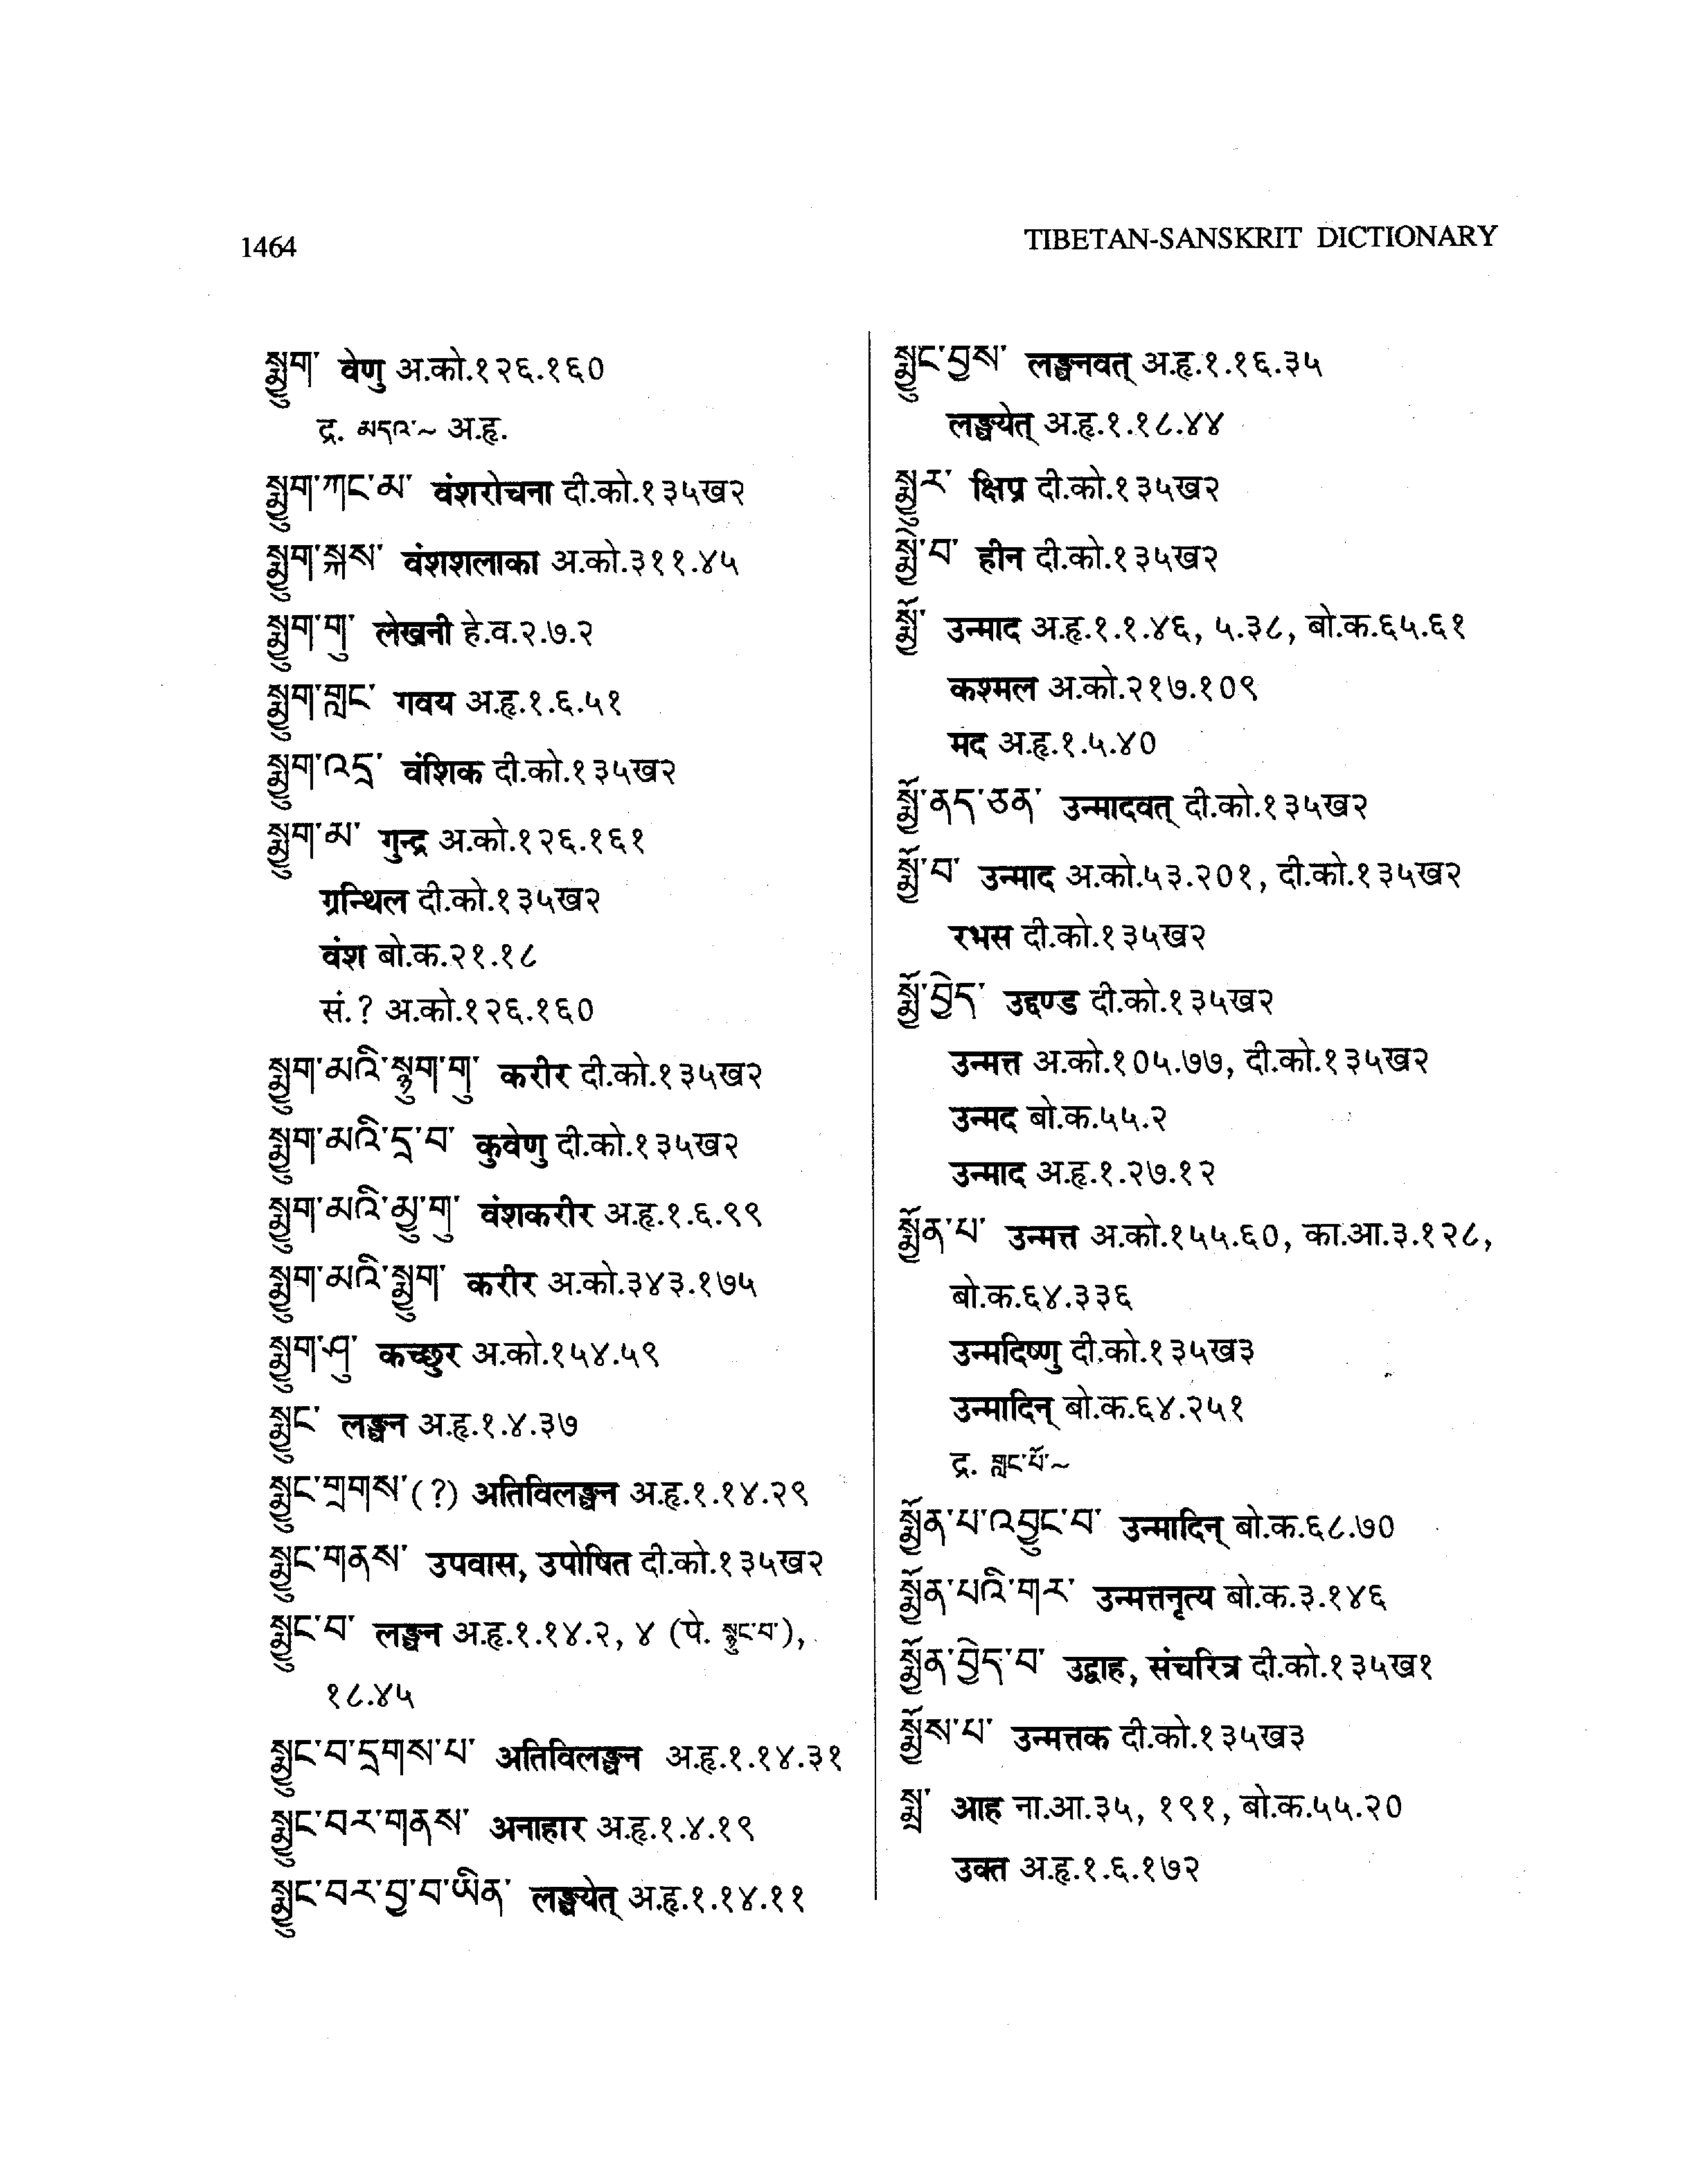 1464
TIBETAN-SANSKRIT DICTIONARY
སྨྱུག་ वेणु अ.को.१२६.१६०
द्र. མདའ་~ अ.हृ.
སྨྱུག་ཀང་མ་ वंशरोचना दी.को.१३५ख२
སྨྱུག་སྐས་ वंशशलाका अ.को.३११.४५
སྨྱུག་གུ་ लेखनी हे.व.२.७.२
སྨྱུག་གླང་ गवय अ.हृ.१.६.५१
སྨྱུག་འདྲ་ वंशिक दी.को.१३५ख२
སྨྱུག་མ་ गुन्द्र अ.को.१२६.१६१
ग्रन्थिल दी.को.१३५ख२
वंश बो.क.२१.१८
सं.? अ.को.१२६.१६०
སྨྱུག་མའི་སྙུག་གུ་ करीर दी.को.१३५ख२
སྨྱུག་མའི་དྲ་བ་ कुवेणु दी.को.१३५ख२
སྨྱུག་མའི་མྱུ་གུ་ वंशकरीर अ.हृ.१.६.९९
སྨྱུག་མའི་སྨྱུག་ करीर अ.को.३४३.१७५
སྨྱུག་ཤུ་ कच्छुर अ.को.१५४.५९
སྨྱུང་ लङ्घन अ.हृ.१.४.३७
སྨྱུང་གྲགས་(?) अतिविलङ्घन अ.हृ.१.१४.२९
སྨྱུང་གནས་ उपवास, उपोषित दी.को.१३५ख२
སྨྱུང་བ་ लङ्घन अ.हृ.१.१४.२, ४ (पे. སྙུང་བ་),
१८.४५
སྨྱུང་བ་དྲགས་པ་ अतिविलङ्घन अ.हृ.१.१४.३१
སྨྱུང་བར་གནས་ अनाहार अ.हृ.१.४.१९
སྨྱུང་བར་བྱ་བ་ཡིན་ लङ्घयेत् अ.हृ.१.१४.११
སྨྱུང་བྱས་ लङ्घनवत् अ.हृ.१.१६.३५
लङ्घयेत् अ.हृ.१.१८.४४
སྨྱུར་ क्षिप्र दी.को.१३५ख२
སྨྱེ་བ་ हीन दी.को.१३५ख२
སྨྱོ་ उन्माद अ.हृ.१.१.४६, ५.३८, बो.क.६५.६१
कश्मल अ.को.२१७.१०९
मद अ.हृ.१.५.४०
སྨྱོ་ནད་ཅན་ उन्मादवत् दी.को.१३५ख२
སྨྱོ་བ་ उन्माद अ.को.५३.२०१, दी.को.१३५ख२
रभस दी.को.१३५ख२
སྨྱོ་བྱེད་ उद्दण्ड दी.को.१३५ख२
उन्मत्त अ.को.१०५.७७, दी.को.१३५ख२
उन्मद बो.क.५५.२
उन्माद अ.हृ.१.२७.१२
སྨྱོན་པ་ उन्मत्त अ.को.१५५.६०, का.आ.३.१२८,
बो.क.६४.३३६
उन्मदिष्णु दी.को.१३५ख३
उन्मादिन् बो.क.६४.२५१
द्र. གླང་པོ་~
སྨྱོན་པ་འབྱུང་བ་ उन्मादिन् बो.क.६८.७०
སྨྱོན་པའི་གར་ उन्मत्तनृत्य बो.क.३.१४६
སྨྱོན་བྱེད་བ་ उद्वाह, संचरित्र दी.को.१३५ख१
སྨྱོས་པ་ उन्मत्तक दी.को.१३५ख३
སྨྲ་ आह ना.आ.३५, १९१, बो.क.५५.२०
उक्त अ.हृ.१.६.१७२